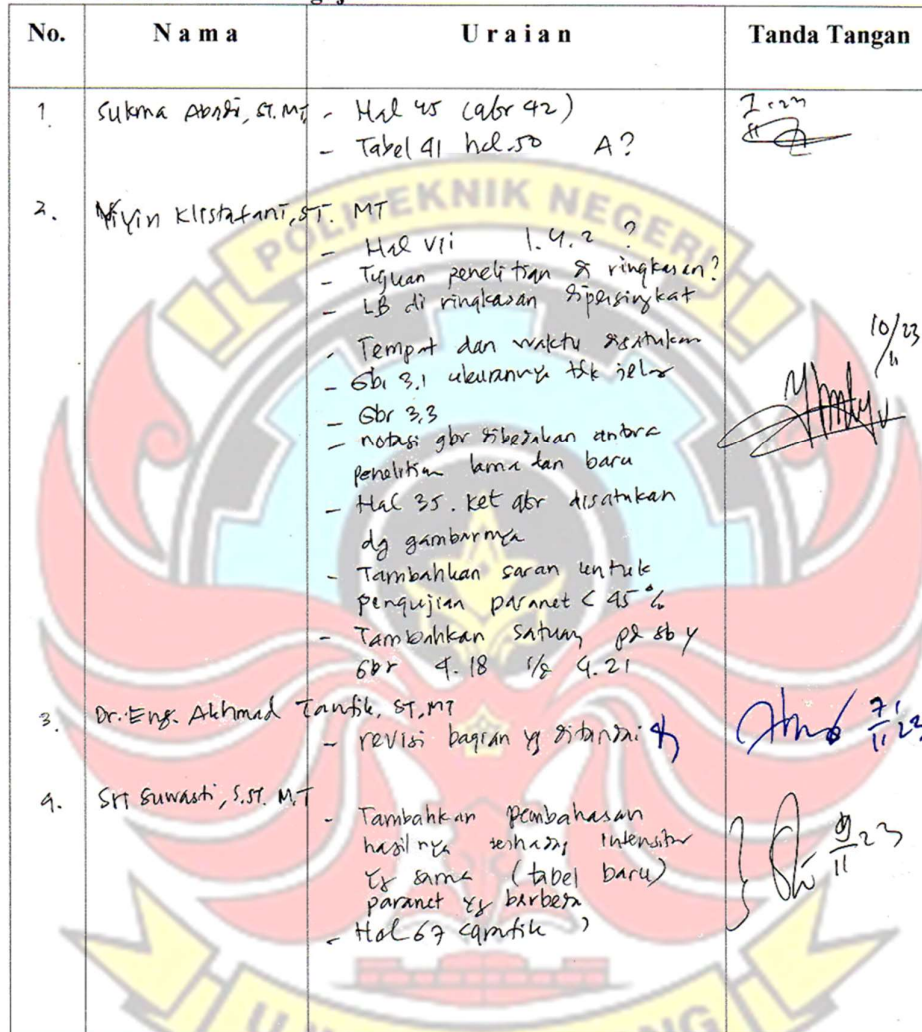 No. Nama Uraian Tanda Tangan
1. Sukma Abadi, ST. MT - Hal 45 (gbr 42)
- Tabel 41 hal. 50 A?
2. Niyin Klistafani, ST. MT
- Hal vii 1.4.2 ?
- Tujuan penelitian di ringkasan?
- LB di ringkasan dipersingkat
- Tempat dan waktu disatukan
- Gbr 3.1 ukurannya tdk jelas
- Gbr 3.3
- notasi gbr dibedakan antara
penelitian lama dan baru
- Hal 35. ket gbr disatukan
dg gambarnya
- Tambahkan saran untuk
pengujian paranet < 45%
- Tambahkan satuan pd sb y
Gbr 4.18 s/d 4.21
10/11 23
3. Dr. Eng. Akhmad Taufik, ST, MT
- revisi bagian yg ditandai
7/11 23
4. Sri Suwasti, S.ST. M.T
- Tambahkan pembahasan
hasilnya terhadap intensitas
yg sama (tabel baru)
paranet yg berbeda
- Hal 67 (grafik)
9/11 23
POLITEKNIK NEGERI
UJUNG PANDANG